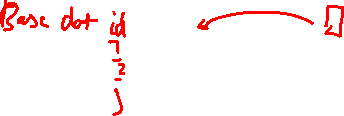 Base dot id
7
2
j